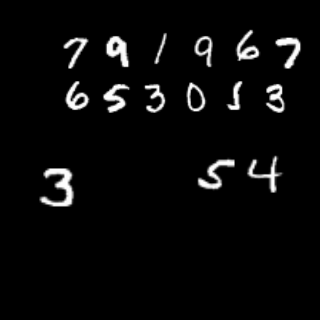 7 9 1 9 6 7
6 5 3 0 5 3
3 5 4